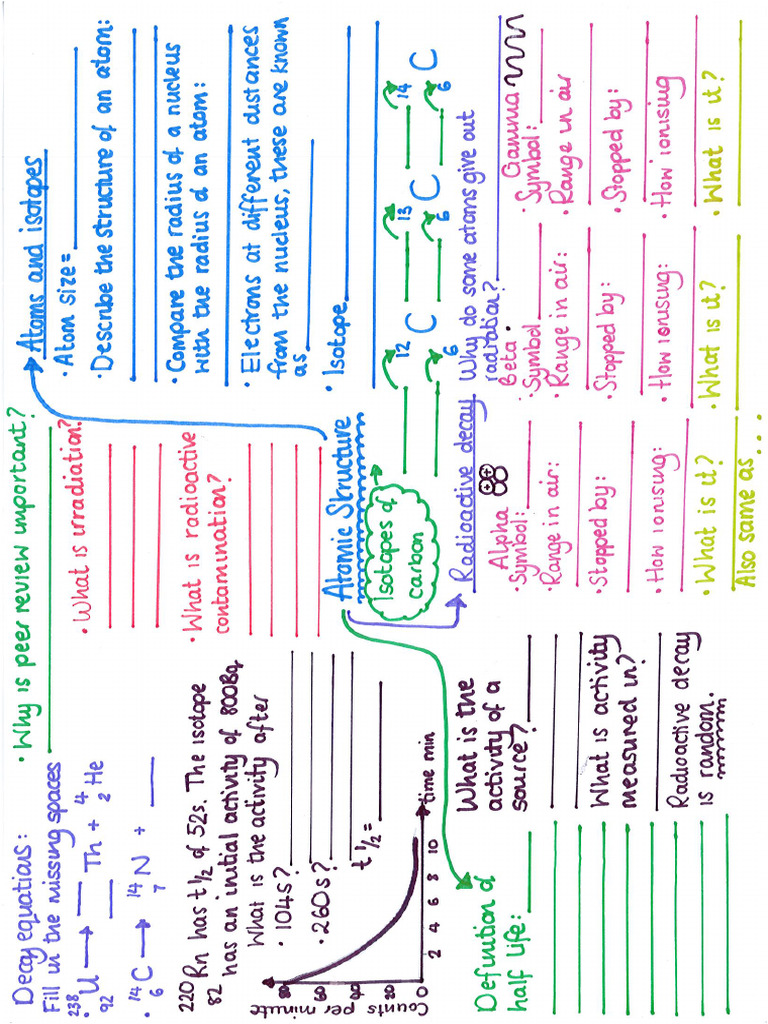 Decay equations:
Fill in the missing spaces
238
92 U → Th + 4
2 He
• 14
6 C → 14
7 N +
220
82 Rn has t 1/2 of 52s. The isotope
has an initial activity of 800Bq.
What is the activity after
• 104s?
• 260s?
t 1/2 =
Counts per minute
80
60
40
20
0
2 4 6 8 10
time min
Definition of
half life:
What is the
activity of a
source?
What is activity
measured in?
Radioactive decay
is random.
• Why is peer review important?
• What is irradiation?
• What is radioactive
contamination?
Atomic Structure
Isotopes of
carbon
12
6 C
13
6 C
14
6 C
Atoms and isotopes
• Atom size =
• Describe the structure of an atom:
• Compare the radius of a nucleus
with the radius of an atom:
• Electrons at different distances
from the nucleus, these are known
as
• Isotope
Radioactive decay
Why do some atoms give out
radiation?
Alpha
• Symbol:
• Range in air:
• Stopped by:
• How ionising:
• What is it?
Also same as ....
Beta
• Symbol
• Range in air:
• Stopped by:
• How ionising:
• What is it?
Gamma
• Symbol:
• Range in air
• Stopped by:
• How ionising
• What is it?